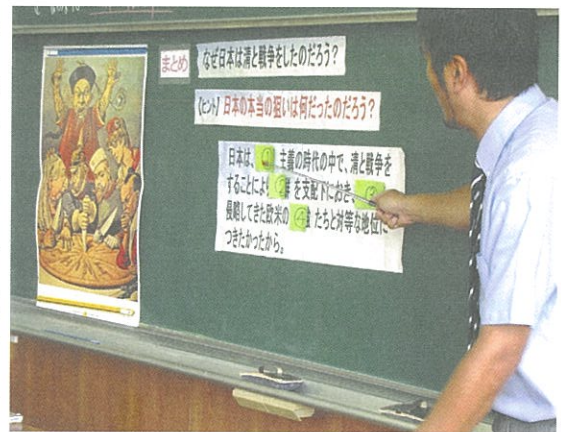 まとめ
なぜ日本は清と戦争をしたのだろう？
《ヒント》日本の本当の狙いは何だったのだろう？
日本は、① 主義の時代の中で、清と戦争を
することにより ② を支配下におき、
侵略してきた欧米の ④ たちと対等な地位に
つきたかったから。